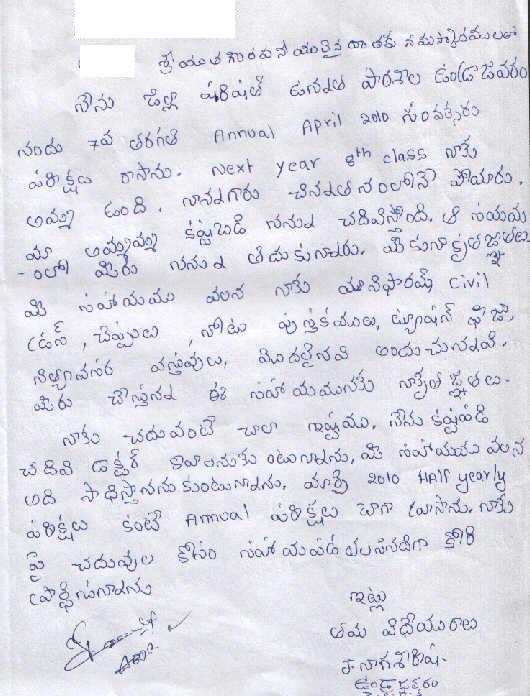 శ్రీయుత గౌరవనీయులైన దాతకు నమస్కారములతో
నేను జిల్లా పరిషత్ ఉన్నత పాఠశాల ఉండ్రాజవరం
నందు 7వ తరగతి Annual April 2010 సంవత్సరం
పరీక్షలు రాసాను. Next year 8th class నాకు
అమ్మ ఉంది. నాన్నగారు చిన్నతనంలోనే పోయారు.
మా అమ్మమ్మ కష్టబడి నన్ను చదివిస్తోంది. ఆ సమయ
-ంలో మీరు నన్ను ఆదుకున్నారు. మీకు నా కృతజ్ఞతలు
మీ సహాయము వలన నాకు యూనిఫారమ్ Civil
డ్రస్, చెప్పులు నోటు పుస్తకములు, ట్యూషన్ ఫీజు,
నిత్యావసర వస్తువులు, మొదలైనవి అందుచున్నవి.
మీరు చేస్తున్న ఈ సహాయమునకు నా కృతజ్ఞతలు.
నాకు చదువంటే చాలా ఇష్టము. నేను కష్టపడి
చదివి డాక్టర్ కావాలనుకుంటున్నాను, మీ సహాయము వలన
అది సాధిస్తాననుకుంటున్నాను. మార్చి 2010 Half yearly
పరీక్షలు కంటే Annual పరీక్షలు బాగా రాసాను. నాకు
పై చదువుల కోసం సహాయపడవలసినదిగా కోరి
ప్రార్థిస్తున్నాను
ఇట్లు
తమ విధేయురాలు
నాగశిరీష.
ఉండ్రాజవరం